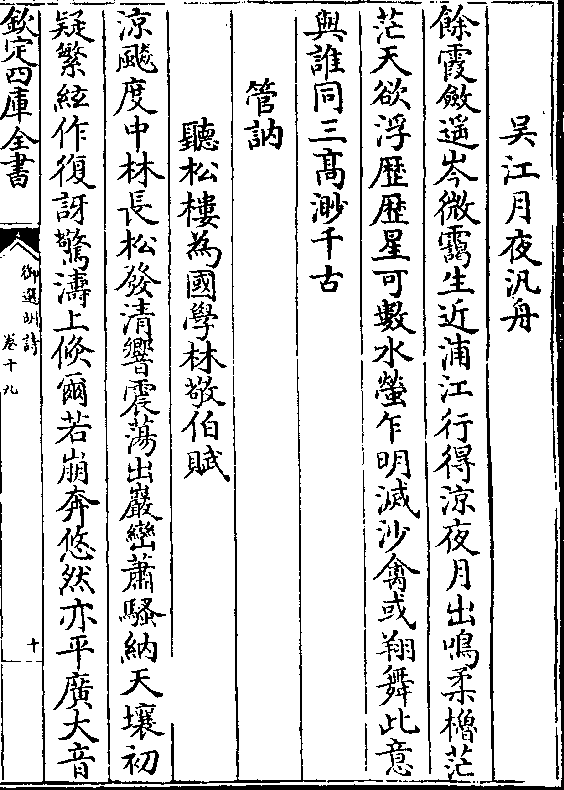 吴江月夜汎舟
餘霞斂遥岑微靄生近浦江行得涼夜月出鳴柔櫓茫
茫天欲浮歴歴星可數水螢乍明滅沙禽或翔舞此意
與誰同三髙渺千古
管訥
聽松樓為國學林敬伯賦
涼飈度中林長松發清響震蕩出巖巒蕭騷納天壤初
疑繁絃作復訝驚濤上倐爾若崩奔悠然亦平廣大音
欽定四庫全書
御選明詩
卷十九
十